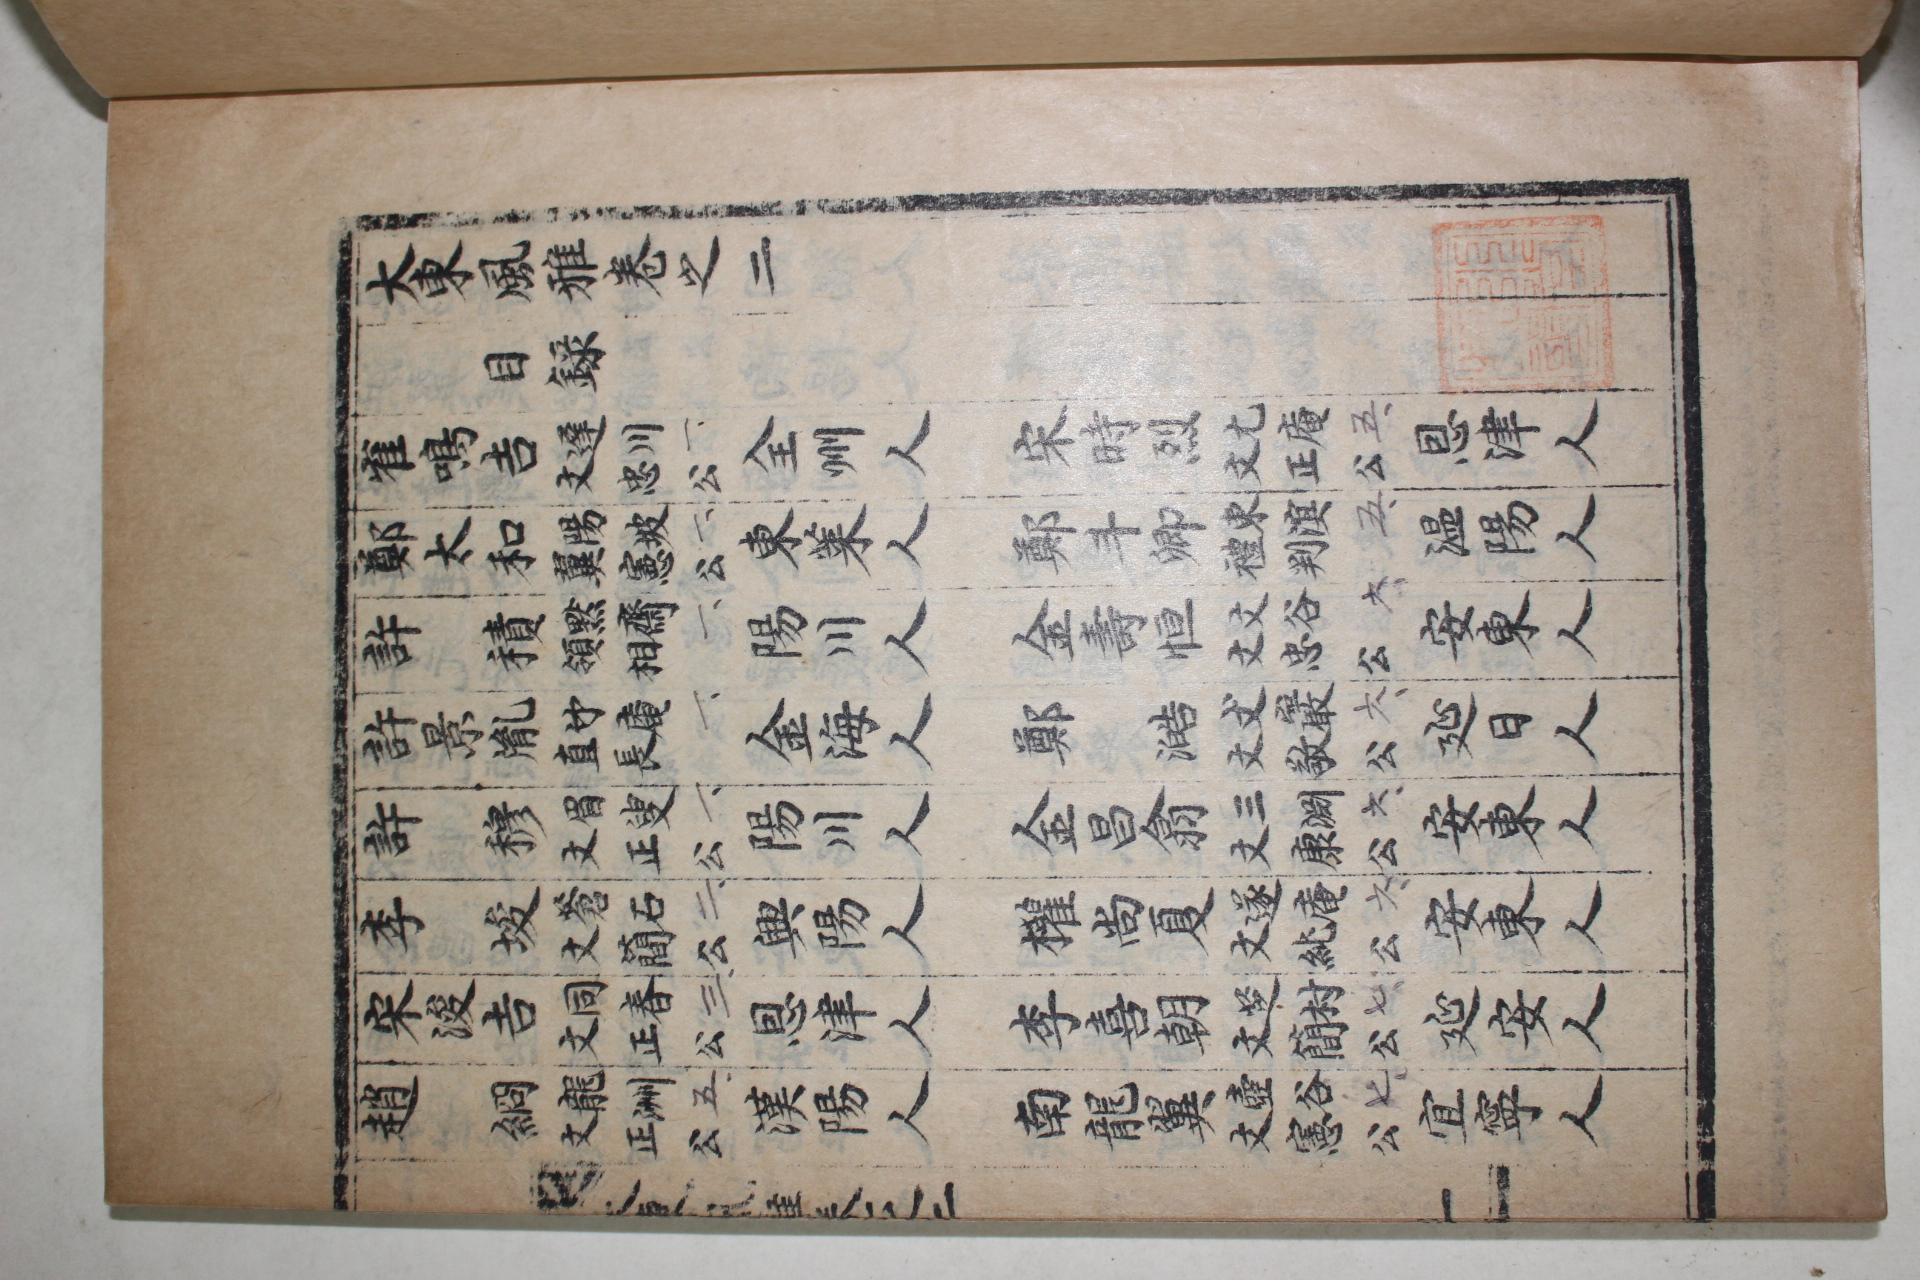 大東風雅卷之二
目錄
崔鳴吉 遲川 文忠公 一、 全州人 宋時烈 尤庵 文正公 五、 恩津人
鄭太和 陽坡 翼憲公 一、 東萊人 鄭斗卿 東溟 禮判 五、 温陽人
許積 默齋 領相 一、 陽川人 金壽恒 文谷 文忠公 六、 安東人
許景胤 竹庵 直長 一、 金海人 鄭澔 丈巖 文敬公 六、 延日人
許穆 眉叟 文正公 一、 陽川人 金昌翕 三淵 文康公 六、 安東人
李埈 蒼石 文簡公 二、 興陽人 權尚夏 遂庵 文純公 六、 安東人
宋浚吉 同春 文正公 三、 恩津人 李喜朝 芝村 文簡公 七、 延安人
趙絅 龍洲 文正公 五、 漢陽人 南龍翼 壺谷 文憲公 七、 宜寧人
大東風雅卷之二
一